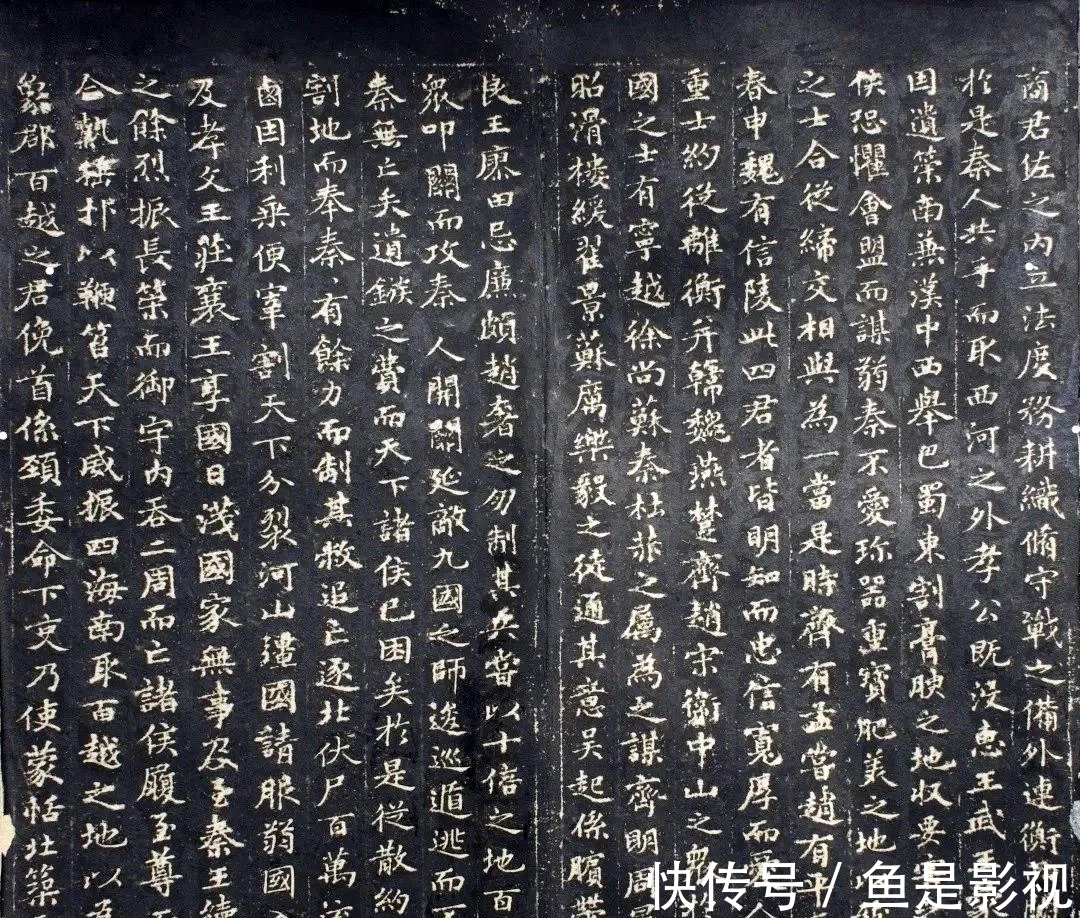 商君佐之內立法度務耕織脩守戰之備外連衡
於是秦人共手而取西河之外孝公既沒惠王武
因遺策南兼漢中西舉巴蜀東割膏腴之地收要害
侯恐懼會盟而謀弱秦不愛珎器重寶肥美之地
之士合從締交相與為一當是時齊有孟嘗趙有平
春申魏有信陵此四君者皆明知而忠信寬厚而愛
重士約從離衡并韓魏燕楚齊趙宋衛中山之眾
國之士有寧越徐尚蘇秦杜赫之屬為之謀齊明周
昭滑樓緩翟景蘇厲樂毅之徒通其意吳起孫臏帶
良王廖田忌廉頗趙奢之勿制其兵嘗以十倍之地百
眾叩關而攻秦人開關延敵九國之師逡巡遁逃而
秦無亡矢遺鏃之費而天下諸侯已困矣於是從散約
割地而奉秦有餘力而制其救追亡逐北伏尸百萬
國因利乘便宰割天下分裂河山彊國請服弱國
及孝文王莊襄王享國日淺國家無事及至秦王續
之餘烈振長策而御宇內吞二周而亡諸侯履至尊
合執捶拊以鞭笞天下威振四海南取百越之地以
郡百越之君俛首係頸委命下吏乃使蒙恬北築
快传号/鱼是影视